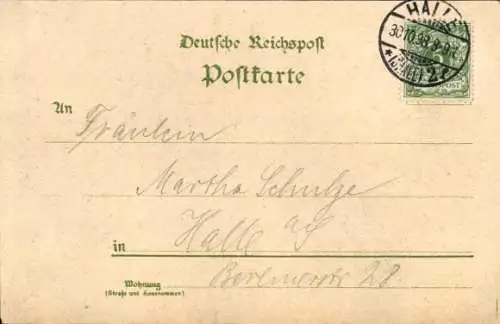 HALLE
30.10.98 8-9V
*(SAALE) 2 c
Deutsche Reichspost
Postkarte
An
Fräulein
Martha Schulze
in Halle a/S
Wohnung
(Straße und Hausnummer)
28.